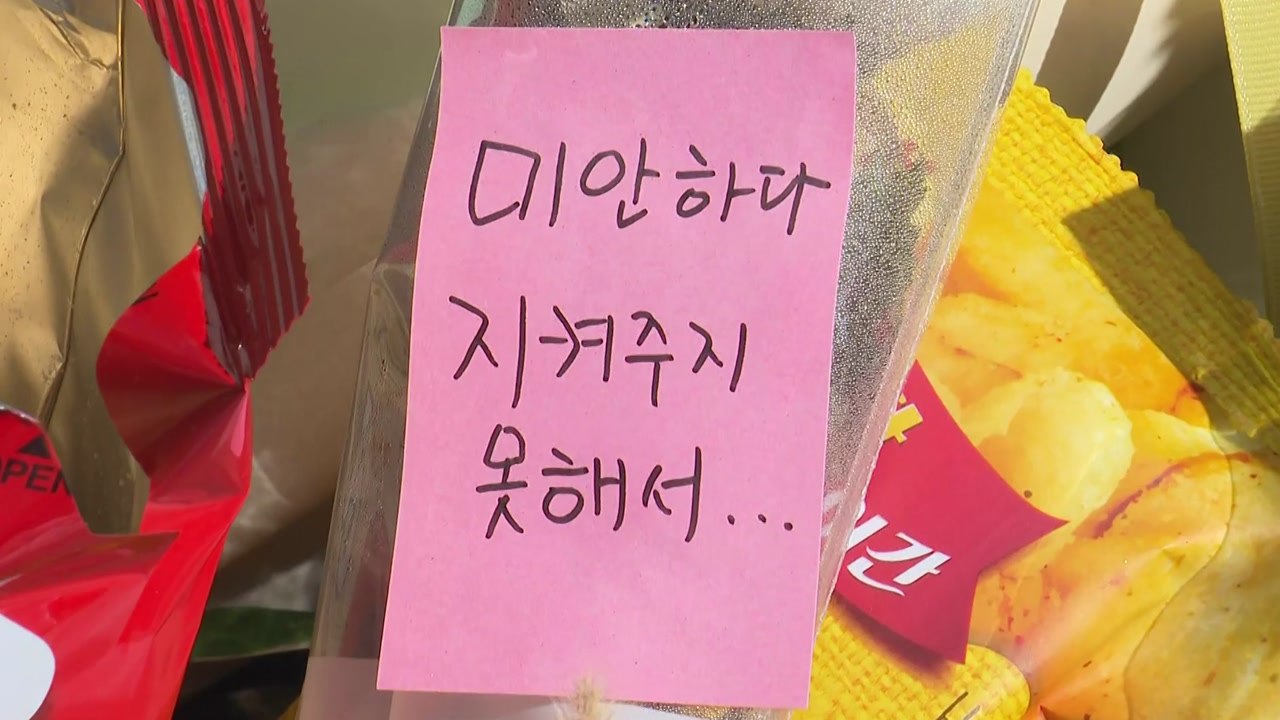 미안하다
지켜주지
못해서...
OPEN